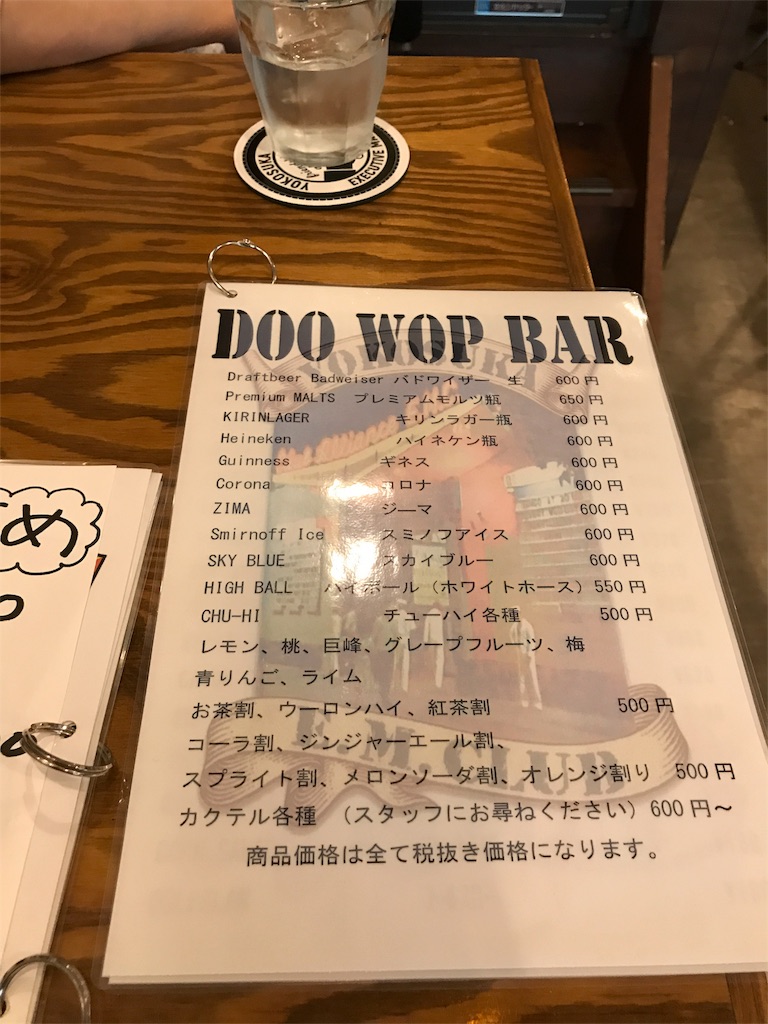 YOKOSUKA
EXECUTIVE M
DOO WOP BAR
YOKOSUKA
Draftbeer Badweiser バドワイザー 生 600円
Premium MALTS プレミアムモルツ瓶 650円
KIRINLAGER キリンラガー瓶 600円
Heineken ハイネケン瓶 600円
Guinness ギネス 600円
Corona コロナ 600円
ZIMA ジーマ 600円
Smirnoff Ice スミノフアイス 600円
SKY BLUE スカイブルー 600円
HIGH BALL ハイボール（ホワイトホース）550円
CHU-HI チューハイ各種 500円
レモン、桃、巨峰、グレープフルーツ、梅
青りんご、ライム
お茶割、ウーロンハイ、紅茶割 500円
コーラ割、ジンジャーエール割、
スプライト割、メロンソーダ割、オレンジ割り 500円
カクテル各種 （スタッフにお尋ねください）600円～
E.M.CLUB
商品価格は全て税抜き価格になります。
め